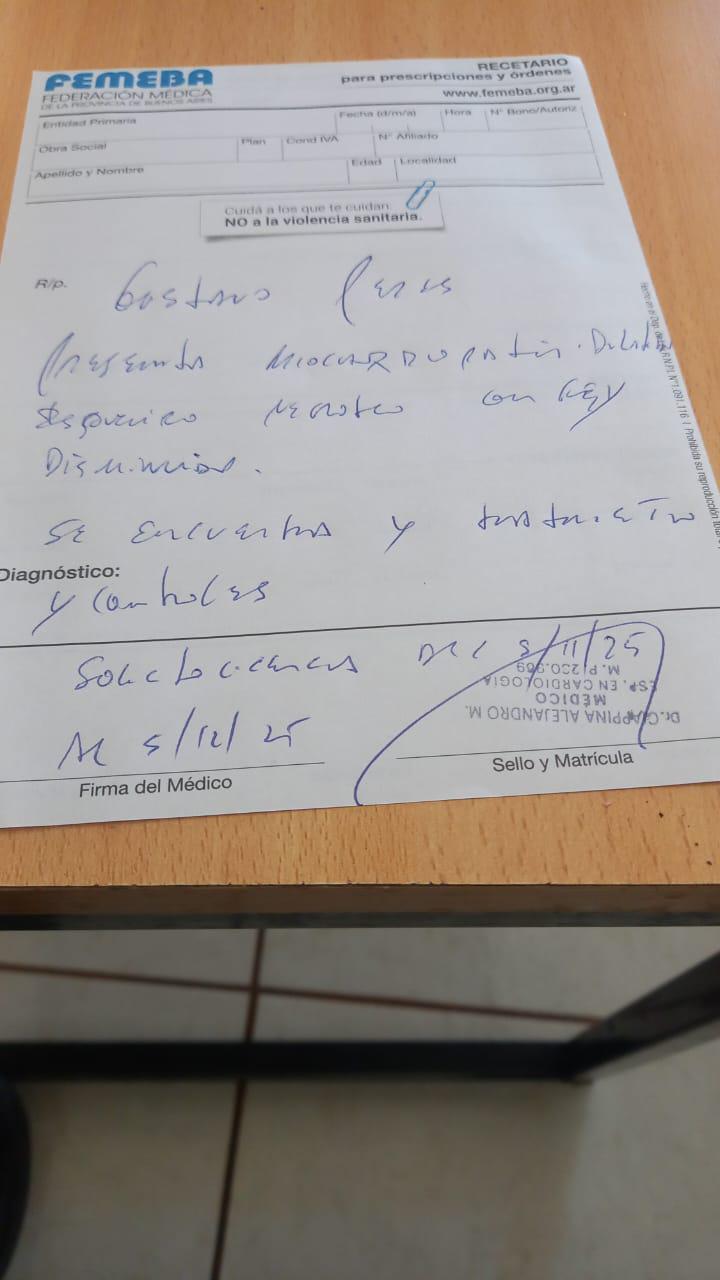 FEMEBA
FEDERACIÓN MÉDICA
DE LA PROVINCIA DE BUENOS AIRES
RECETARIO
para prescripciones y órdenes
www.femeba.org.ar
Entidad Primaria
Fecha (d/m/a)
Hora
N° Bono/Autoriz
Obra Social
Plan
Cond IVA
N° Afiliado
Apellido y Nombre
Edad
Localidad
Cuidá a los que te cuidan.
NO a la violencia sanitaria.
R/p.
Gustavo
Presenta miocardiopatia Dilatada
con FEY
Disminuida.
Se encuentra y tratamiento
Diagnóstico:
y controles
Solicito licencia del 5/11/25
Al 5/12/25
Dr. GIAPPINA ALEJANDRO M.
MÉDICO
ESP. EN CARDIOLOGÍA
Firma del Médico
Sello y Matrícula